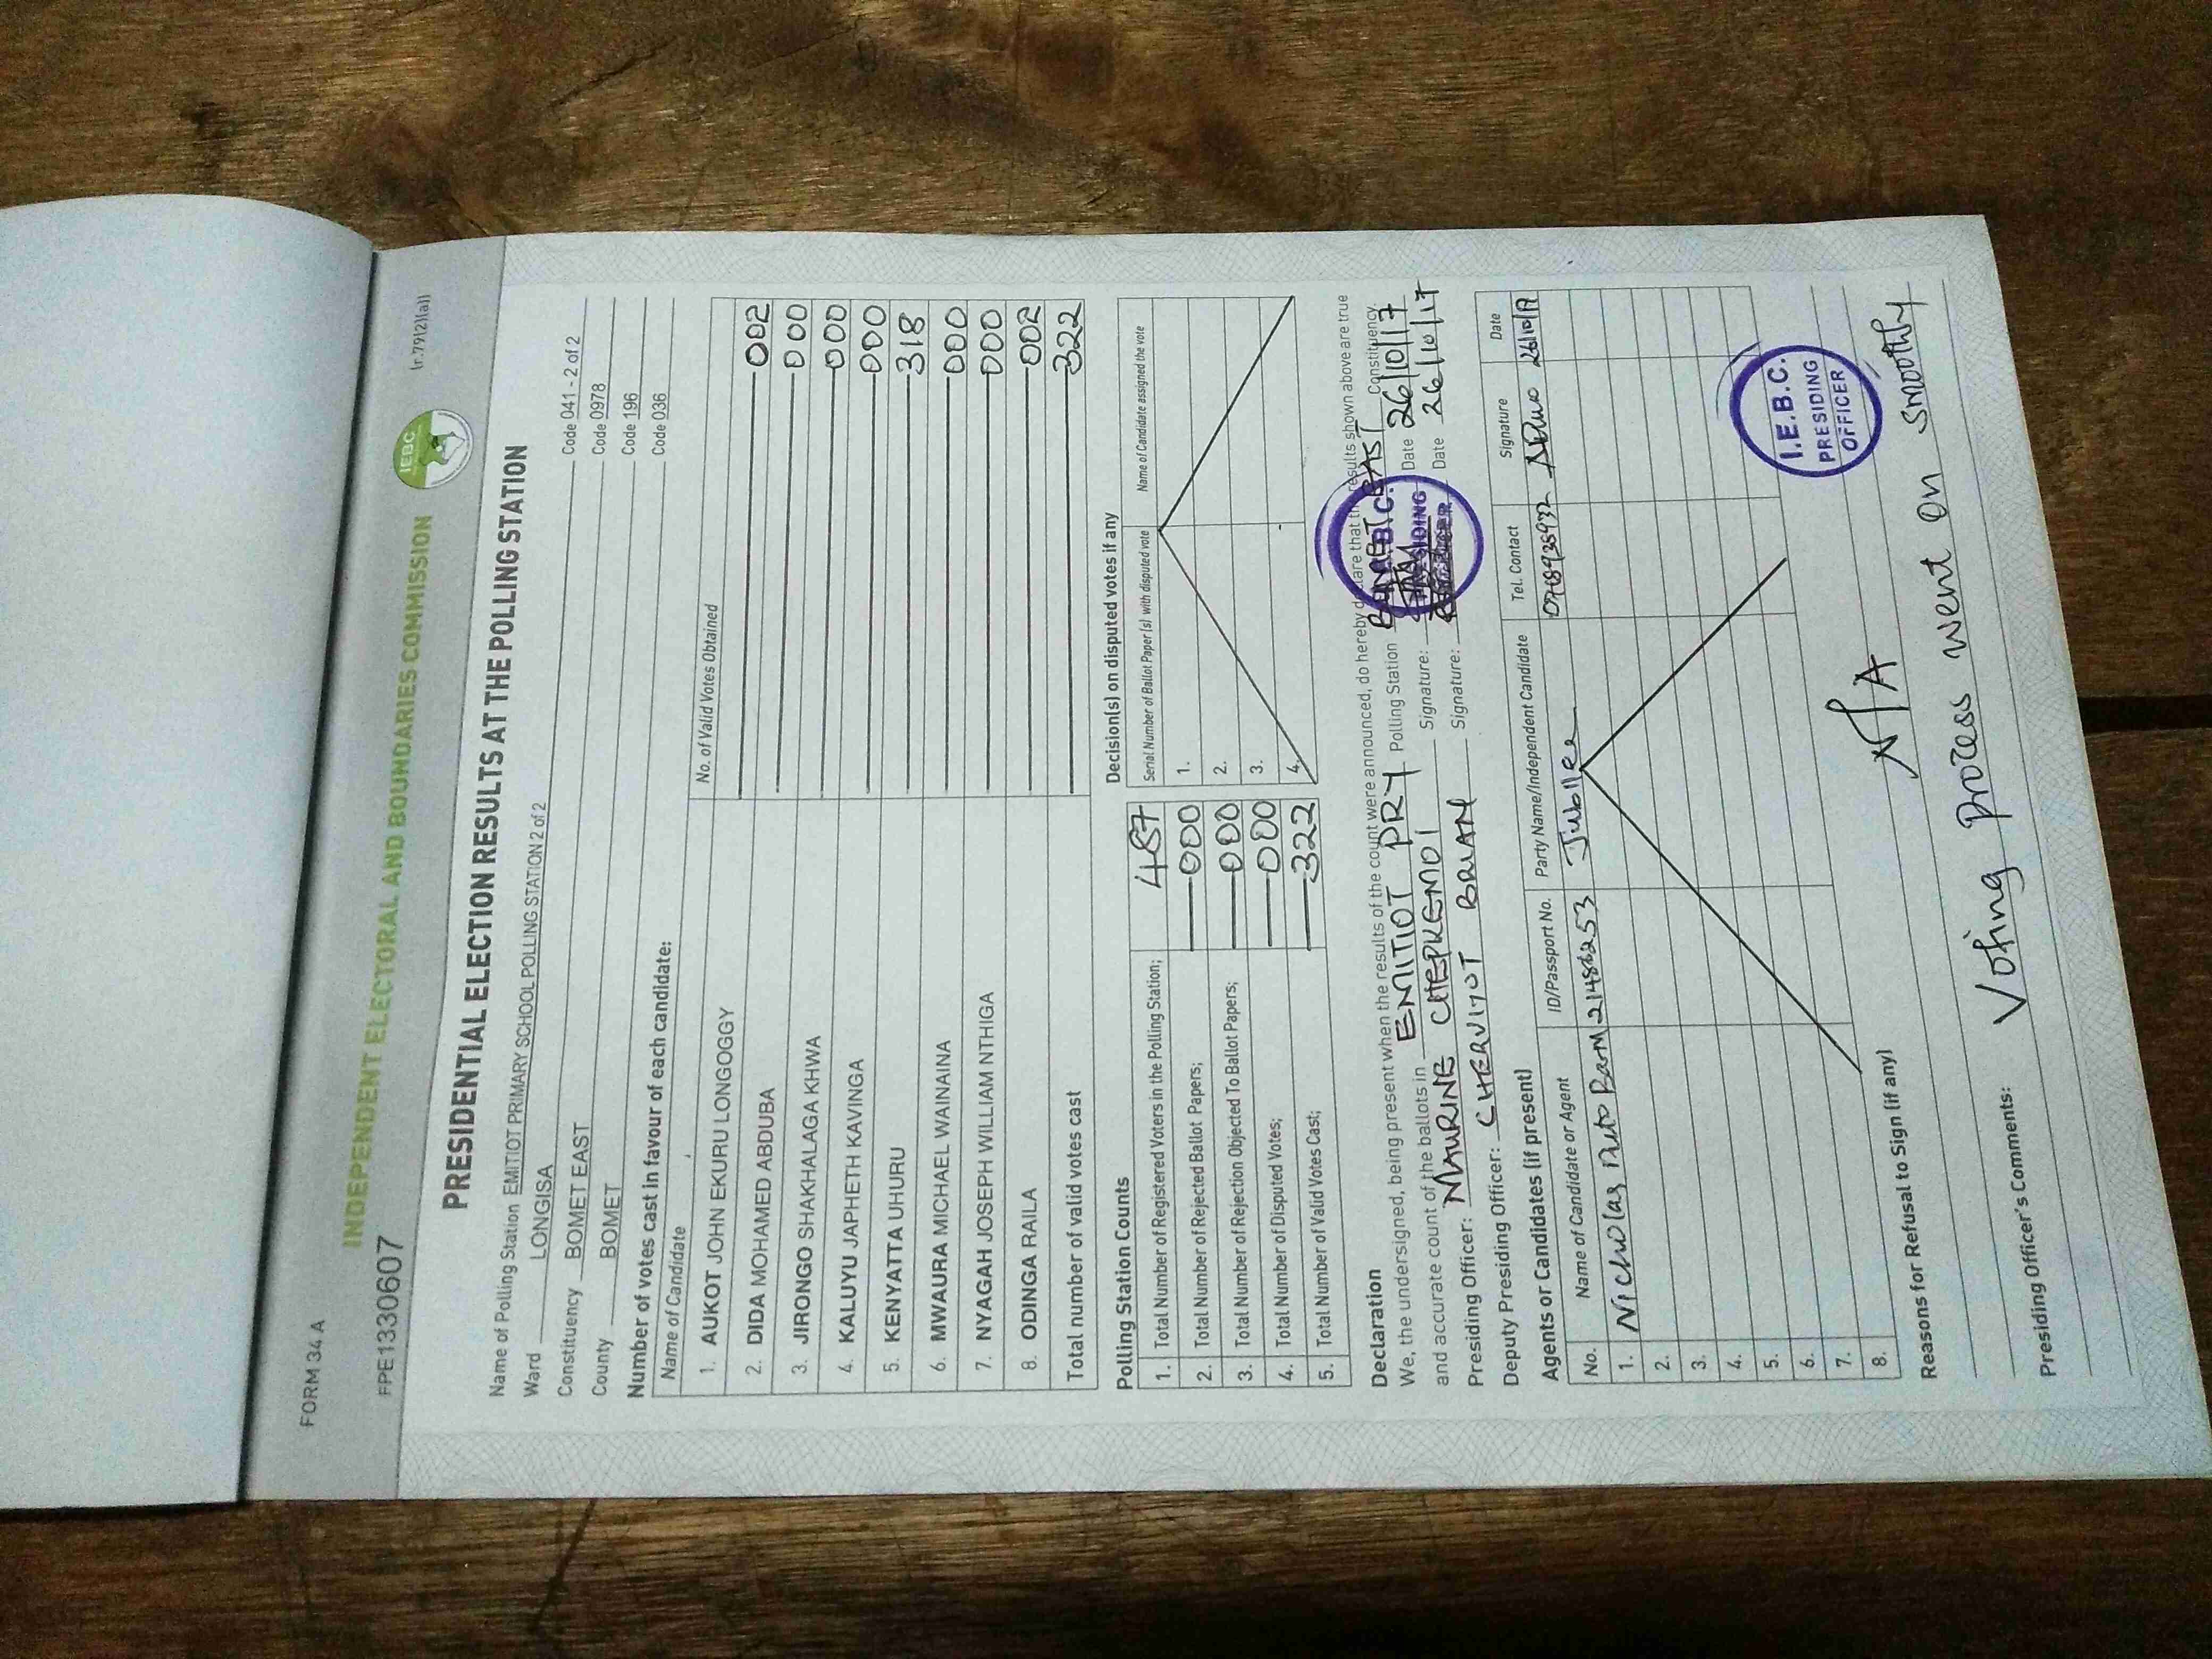 FORM 34 A
(r.79(2)(a))
INDEPENDENT ELECTORAL AND BOUNDARIES COMMISSION
IEBC
FPE1330607
PRESIDENTIAL ELECTION RESULTS AT THE POLLING STATION
Name of Polling Station EMITIOT PRIMARY SCHOOL POLLING STATION 2 of 2 Code 041 - 2 of 2
Ward LONGISA Code 0978
Constituency BOMET EAST Code 196
County BOMET Code 036
Number of votes cast in favour of each candidate:
Name of Candidate No. of Valid Votes Obtained
1. AUKOT JOHN EKURU LONGOGGY 002
2. DIDA MOHAMED ABDUBA 000
3. JIRONGO SHAKHALAGA KHWA 000
4. KALUYU JAPHETH KAVINGA 000
5. KENYATTA UHURU 318
6. MWAURA MICHAEL WAINAINA 000
7. NYAGAH JOSEPH WILLIAM NTHIGA 000
8. ODINGA RAILA 002
Total number of valid votes cast 322
Polling Station Counts
1. Total Number of Registered Voters in the Polling Station; 487
2. Total Number of Rejected Ballot Papers; 000
3. Total Number of Rejection Objected To Ballot Papers; 000
4. Total Number of Disputed Votes; 000
5. Total Number of Valid Votes Cast; 322
Decision(s) on disputed votes if any
Serial Number of Ballot Paper (s) with disputed vote Name of Candidate assigned the vote
1.
2.
3.
4.
Declaration
We, the undersigned, being present when the results of the count were announced, do hereby declare that the results shown above are true
and accurate count of the ballots in EMITIOT PRY Polling Station BOMET EAST Constituency.
Presiding Officer: MAURINE CHEPKEMOI Signature: Date 26/10/17
Deputy Presiding Officer: CHERUIYOT BRIAN Signature: Date 26/10/17
I.E.B.C. PRESIDING OFFICER
Agents or Candidates (if present)
No. Name of Candidate or Agent ID/Passport No. Party Name/Independent Candidate Tel. Contact Signature Date
1. Nicholas 21486253 Jubilee 26/10/17
2.
3.
4.
5.
6.
7.
8.
I.E.B.C.
PRESIDING
OFFICER
Reasons for Refusal to Sign (if any)
N/A
Presiding Officer's Comments:
Voting process went on smoothly